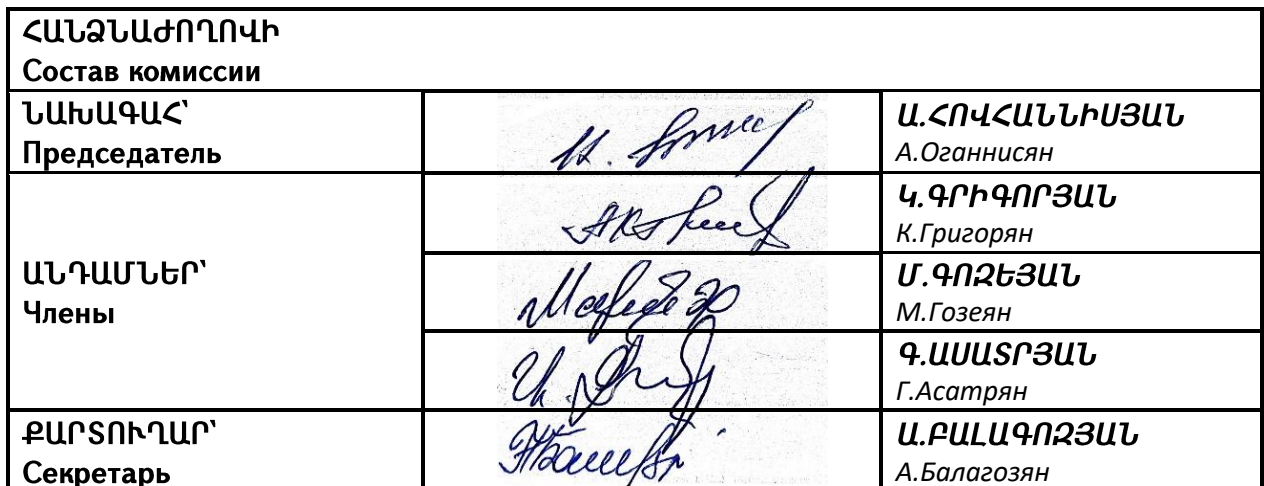 ՀԱՆՁՆԱԺՈՂՈՎԻ
Состав комиссии
ՆԱԽԱԳԱՀ՝
Председатель
Ա.ՀՈՎՀԱՆՆԻՍՅԱՆ
А.Оганнисян
ԱՆԴԱՄՆԵՐ՝
Члены
Կ.ԳՐԻԳՈՐՅԱՆ
К.Григорян
Մ.ԳՈԶԵՅԱՆ
М.Гозеян
Գ.ԱՍԱՏՐՅԱՆ
Г.Асатрян
ՔԱՐՏՈՒՂԱՐ՝
Секретарь
Ա.ԲԱԼԱԳՈԶՅԱՆ
А.Балагозян